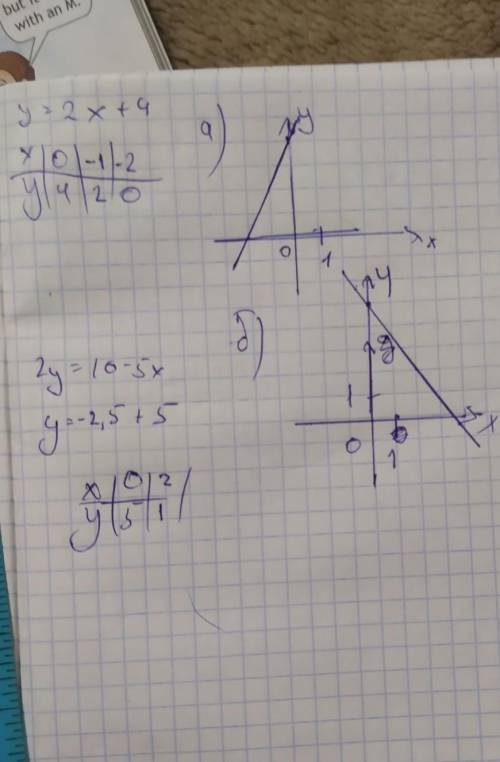 but it
with an M.
y = 2x + 4
x | 0 | -1 | -2
y | 4 | 2 | 0
а)
y
0
1
x
б)
y
1
0
1
x
2y = 10 - 5x
y = -2,5 + 5
x | 0 | 2
y | 5 | 1